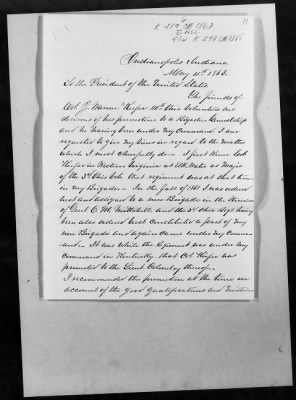 11
K 219 CB 1863
Indianapolis Indiana
May 15th 1863.
To the President of the United States
The friends of
Col. J. Warren Keifer 110th Ohio Volunteers are
desirous of his promotion to a Brigadier Generalship
and he having been under my Command I am
requested to give my views in regard to the matter
which I most cheerfully do. I first knew Col
Keifer in Western Virginia as Major
of the 3d Ohio Vols that regiment was at that time
in my Brigade. In the fall of 1861 I was ordered
and assigned to a new Brigade in the Division
of Genl O. M. Mitchell and the 3d Ohio Regt having
been also ordered West constituted a part of my
new Brigade and again came under my Comm-
and. It was while the Regiment was under my
Command in Kentucky that Col Keifer was
promoted to the Lieut Colonelcy thereof.
I recommended the promotion at the time on
account of the good qualifications and